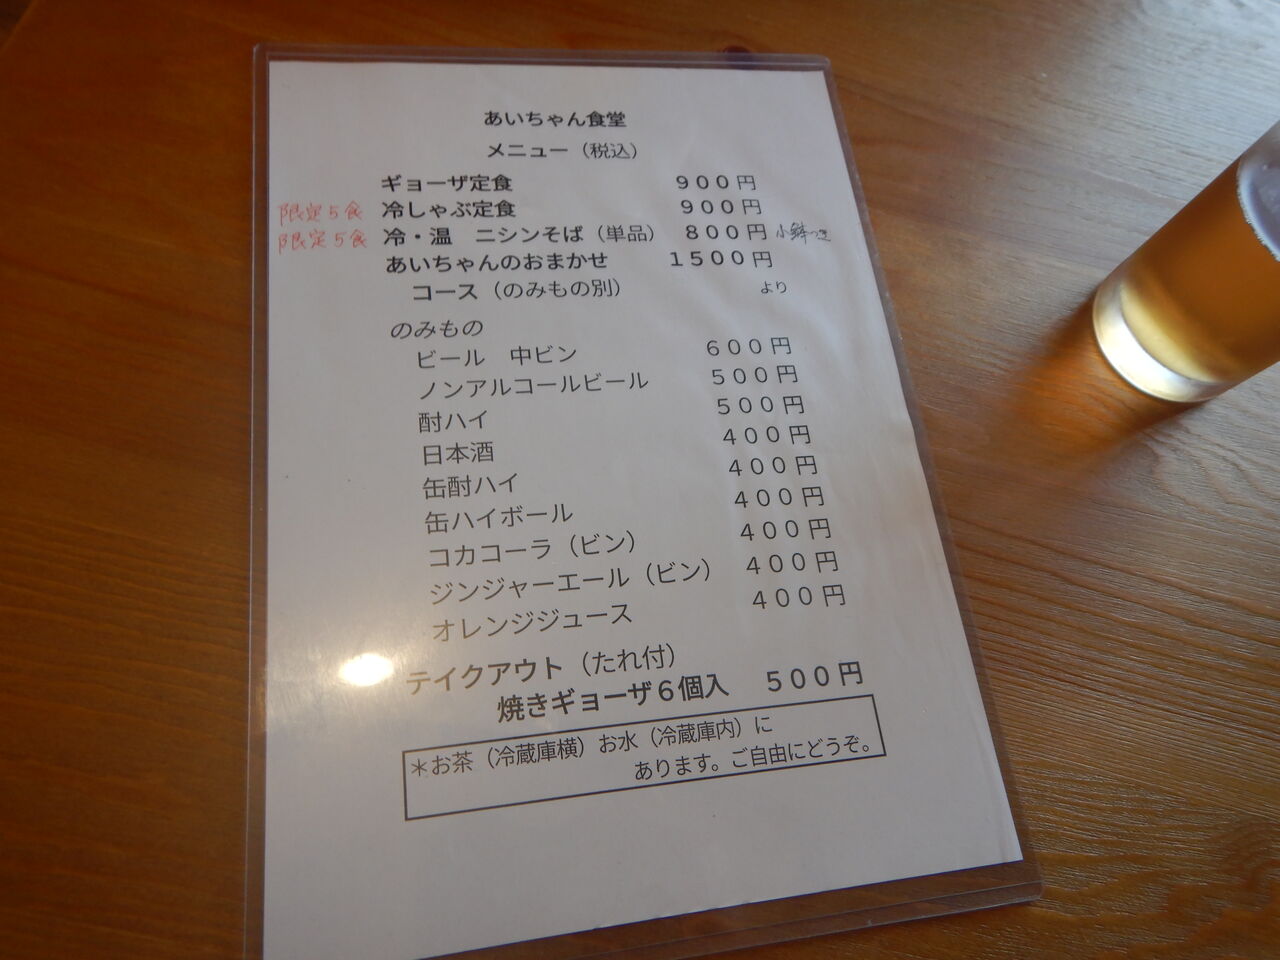 あいちゃん食堂
メニュー（税込）
ギョーザ定食 ９００円
限定５食 冷しゃぶ定食 ９００円
限定５食 冷・温　ニシンそば（単品） ８００円 小鉢つき
あいちゃんのおまかせ １５００円
コース（のみもの別） より
のみもの
ビール　中ビン ６００円
ノンアルコールビール ５００円
酎ハイ ５００円
日本酒 ４００円
缶酎ハイ ４００円
缶ハイボール ４００円
コカコーラ（ビン） ４００円
ジンジャーエール（ビン） ４００円
オレンジジュース ４００円
テイクアウト（たれ付）
焼きギョーザ６個入 ５００円
＊お茶（冷蔵庫横）お水（冷蔵庫内）に
あります。ご自由にどうぞ。